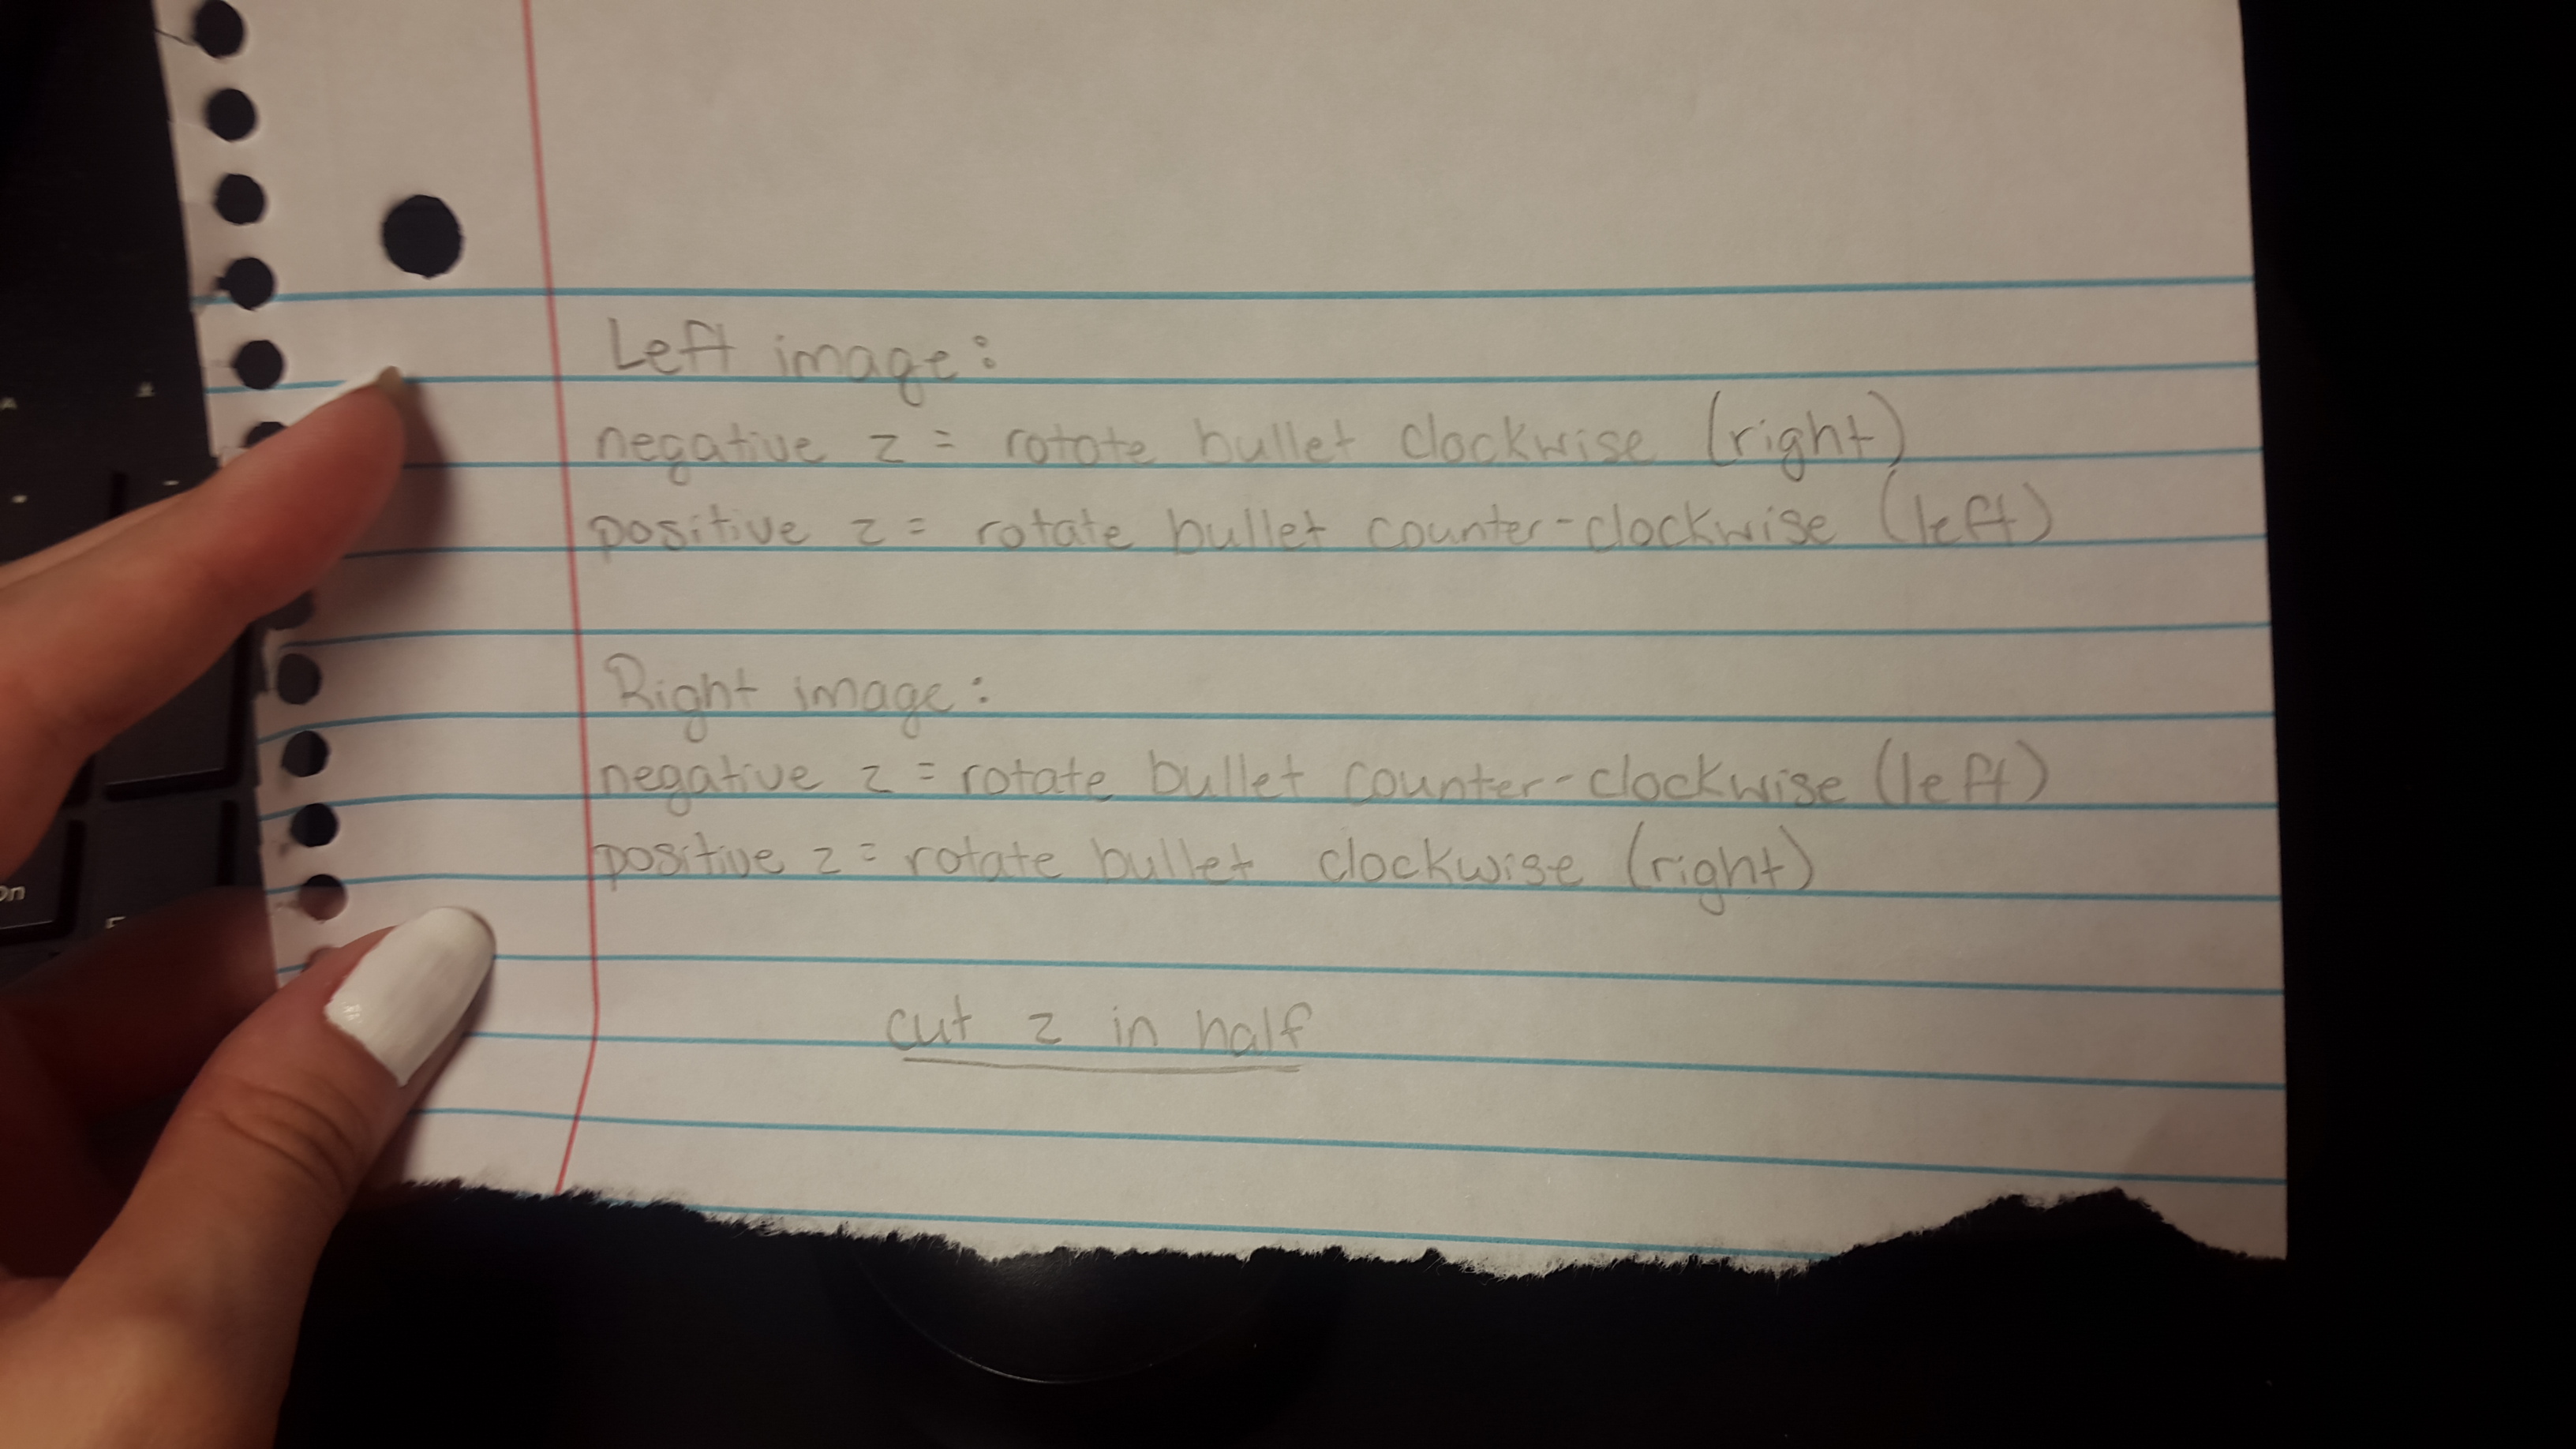 Left image:
negative z = rotate bullet clockwise (right)
positive z = rotate bullet counter-clockwise (left)
Right image:
negative z = rotate bullet counter-clockwise (left)
positive z = rotate bullet clockwise (right)
cut z in half